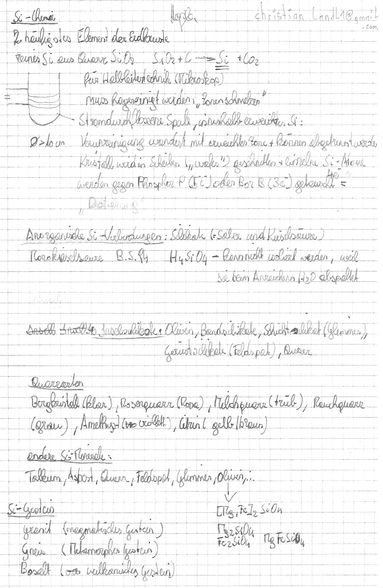 Si-Chemie
christian.Landl1@gmail
.com
2. häufigstes Element der Erdkruste
reines Si aus Quarz SiO2 SiO2 + C → Si + CO2
für Halbleitertechnik (Mikroskop)
muss sein werden: "Zonenschmelzen"
Stromdurchflossene Spule, innerhalb Si:
Ø > 10 cm Verunreinigung wandert mit Zone + können abgetrennt werden
Kristall wird in Scheiben ("wafer") geschnitten + einzelne Si-Atome
werden gegen Phosphor P (5e) oder Bor B (3e) getauscht =
"Dotierung"
Anorganische Si-Verbindungen: Silikate (= Salze der Kieselsäure)
Monokieselsäure B.S.94 H4SiO4 – kann nicht isoliert werden, weil
sie beim Anreichern H2O abspaltet
Inselsilikate: Olivin, Bandsilikate, Schichtsilikat (Glimmer),
Gerüstsilikate (Feldspat), Quarz
Quarzarten
Bergkristall (klar), Rosenquarz (rosa), Milchquarz (trüb), Rauchquarz
(grau), Amethyst (violett), Citrin (gelb/braun)
andere Si-Minerale:
Talkum, Asbest, Quarz, Feldspat, Glimmer, Olivin,...
[Mg, Fe]2 SiO4
Si-Gestein
Mg2SiO4
Granit (magmatisches Gestein) Fe2SiO4 MgFeSiO4
Gneis (Metamorphes Gestein)
Basalt (vulkanisches Gestein)